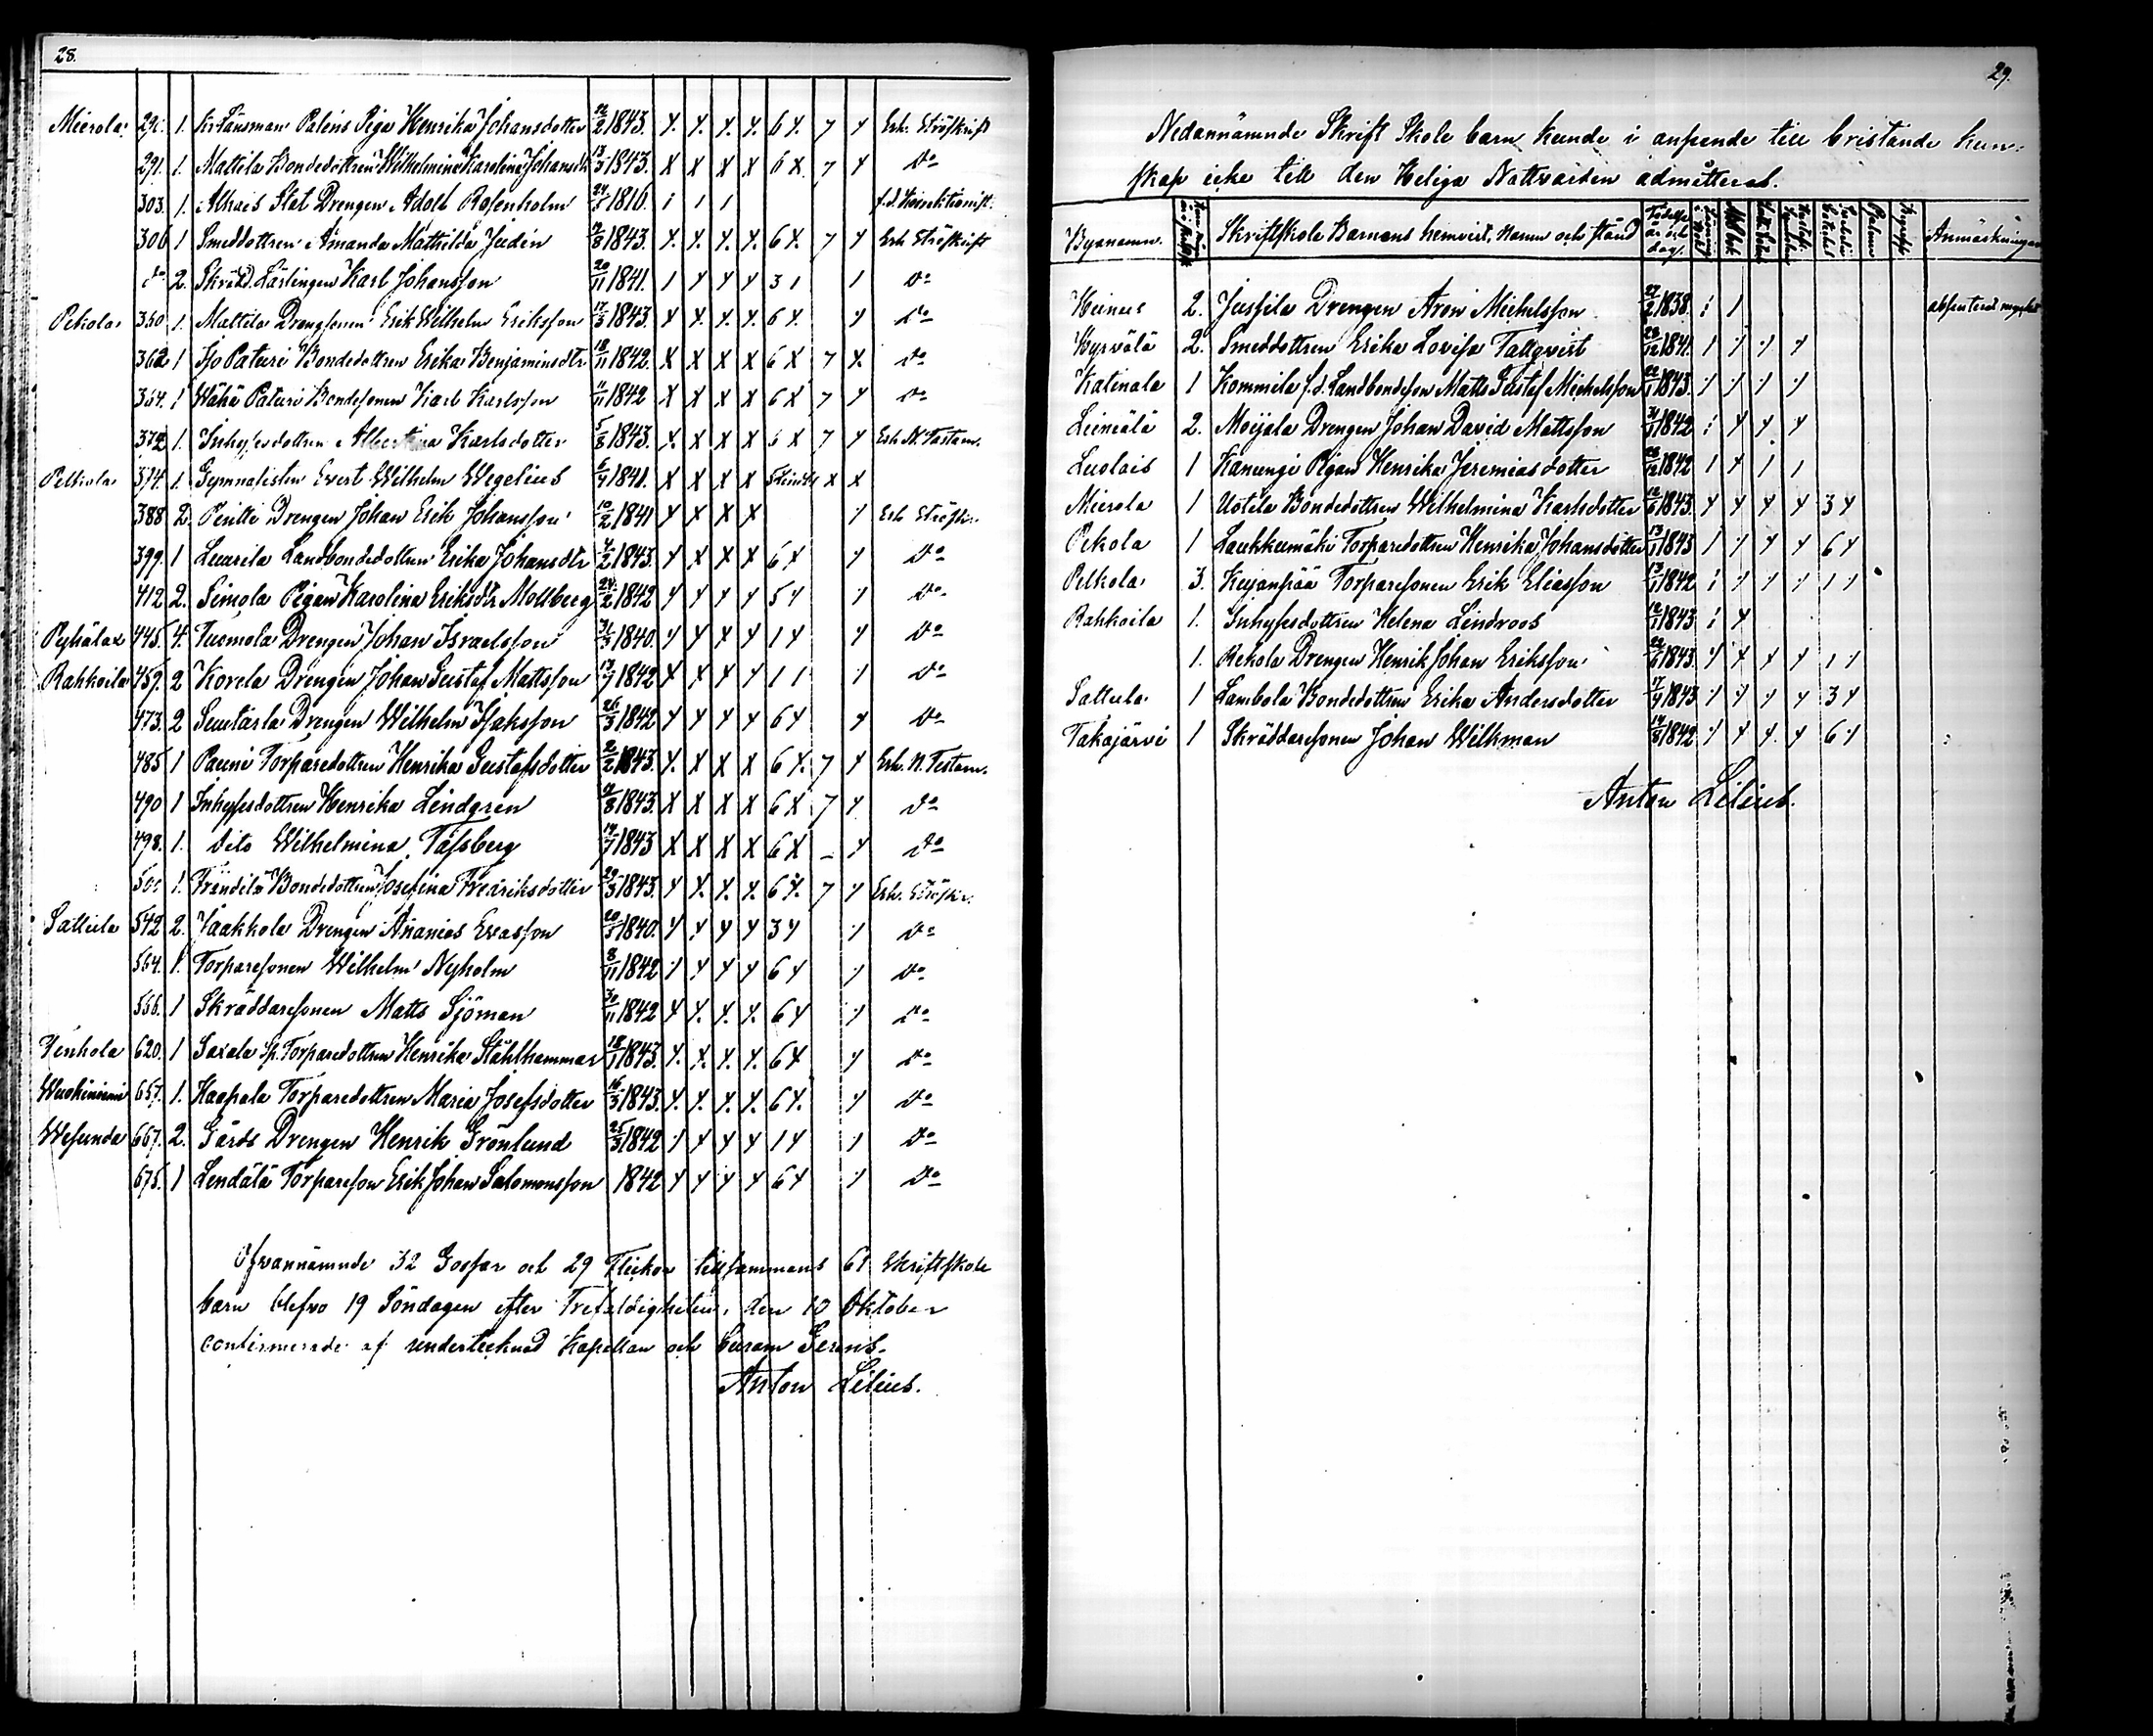 28.
Mierola 290. 1. Kr. Länsman Paléns Piga Henrika Johansdotter 22/2 1843. X. X. X. X. 6 X. 7 X Erh. Ströskrift
291. 1. Mattila Bondedottren Wilhelmina Karolina Johansdr 13/3 1843. X X X X 6 X. 7 X Do
303. 1. Alhais Stat Drengen Adolf Rosenholm 24/7 1816. 1 1 1 f.d. Korrektionist.
306 1 Smeddottren Amanda Mathilda Judén 4/8 1843. X. X. X. X. 6 X. 7 X Erh Ströskrift
do 2. Skrädd. Lärlingen Karl Johansson 20/11 1841. 1 Y Y Y 3 1 1 Do
Pekola 350 1. Mattila Drengsonen Erik Wilhelm Eriksson 17/3 1843. X X. X. X. 6 X. Y Do
362 1 Iso Paturi Bondedottren Erika Benjaminsdtr 18/11 1842. X X X X 6 X 7 X Do
364. 1 Wähä Paturi Bondesonen Karl Karlsson 11/11 1842 X X X X 6 X 7 Y Do
372 1. Inhysesdottren Albertina Karlsdotter 5/8 1843. X. X X X 6 X 7 Y Erh N. Testam.
Pelkola 374. 1. Gymnasisten Evert Wilhelm Wegelius 6/4 1841. X X X X X X
388 2. Pentti Drengen Johan Erik Johansson 10/2 1841 Y X X X 1 Erh Ströskr.
399. 1 Luurila Landbondedottren Erika Johansdtr 4/2 1843. Y X X X 6 X 1 Do
412 2. Simola Pigan Karolina Eriksdtr Mollberg 24/2 1842 Y Y Y Y 5 Y 1 Do
Pyhälax 445. 4. Tuomola Drengen Johan Israelsson 31/3 1840. Y Y Y Y 1 Y Y Do
Rahkoila 459. 2 Korela Drengen Johan Gustaf Mattsson 13/7 1842 X X X Y 1 1 1 Do
473. 2 Drengen Wilhelm Isaksson 26/3 1842 Y Y Y Y 6 Y Y Do
485 1 Pauni Torparedottren Henrika Gustafsdotter 2/2 1843. X. X X X 6 X. 7 Y Erh. N. Testam.
490 1 Inhysesdottren Henrika Lindgren 4/8 1843. X X X X 6 X 7 Y Do
498. 1. Dito Wilhelmina Tafsberg 14/7 1843 X X X X 6 X – Y Do
1. Fräntilä Bondedottren Josefina Fredriksdotter 29/3 1843. Y X. X. X. 6 X. 7 Y Erh. Ströskr.
Sattula 542 2. Jaakkola Drengen Ananias Esrasson 20/3 1840. Y Y Y Y 3 Y 1 Do
564. 1. Torparesonen Wilhelm Nyholm 8/11 1842 1 Y Y Y 6 Y 1 Do
566. 1 Skräddaresonen Matts Sjöman 30/11 1842 Y Y. Y. Y. 6 Y 1 Do
Tenhola 620. 1 Saxala Sp. Torparedottren Henrika Stålhammar 18/1 1843. Y. X. Y. Y. 6 Y Y Do
Wuohiniemi 657. 1. Haapala Torparedottren Maria Josefsdotter 16/3 1843. Y. Y. Y. Y. 6 Y. Y Do
Wesunda 667. 2. Gårds Drengen Henrik Grönlund 25/3 1842 1 Y Y Y 1 Y 1 Do
675. 1 Lendälä Torpareson Erik Johan Salomonsson 1842 Y Y Y Y 6 Y 1 Do
Ofvannämnde 32 Gossar och 29 Flickor tillsammans 61 Skriftskole
barn blefvo 19 Söndagen efter Trefaldigheten, den 10 Oktober
confirmerade af undertecknad Kapellan och
Anton Lilius.
29.
Nedannämnde Skrift Skole barn kunde i anseende till bristande kun-
skap icke till den Heliga Nattvarden admitteras.
Byanamn. Skriftskole Barnens hemvist, Namn och stånd Födelse år och dag. Anmärkningar
2. Jussila Drengen Aron Michelsson 27/2 1838. 1 1 absenterat mycket
Hyrvälä 2. Smeddottren Erika Lovisa Tallqvist 28/12 1841. 1 Y Y Y
Katinala 1 Kommila f.d. Landbondeson Matts Gustaf Michelsson 22/1 1843. Y Y Y Y
Leiniälä 2. Moijala Drengen Johan David Mattsson 31/3 1842 1 Y Y Y
Luolais 1 Kanungi Pigan Henrika Jeremiasdotter 26/12 1842 1 Y 1 1
Mierola 1 Uotila Bondedottren Wilhelmina Karlsdotter 12/6 1843. Y Y Y Y 3 Y
Pekola 1 Laukkumäki Torparedottren Henrika Johansdotter 13/1 1843 1 Y Y Y 6 Y
Pelkola 3. Kujanpää Torparesonen Erik Eliasson 13/1 1842 1 Y Y Y 1 1
Rahkoila 1. Inhysesdottren Helena Lindroos 12/1 1843 1 Y
1. Rekola Drengen Henrik Johan Eriksson 22/6 1843. Y Y Y Y 1 1
Sattula 1 Lambola Bondedottren Erika Andersdotter 17/4 1843 Y Y Y Y 3 Y
Takajärvi 1 Skräddaresonen Johan Wilhman 14/8 1842 Y Y Y. Y 6 Y
Anton Lilius.